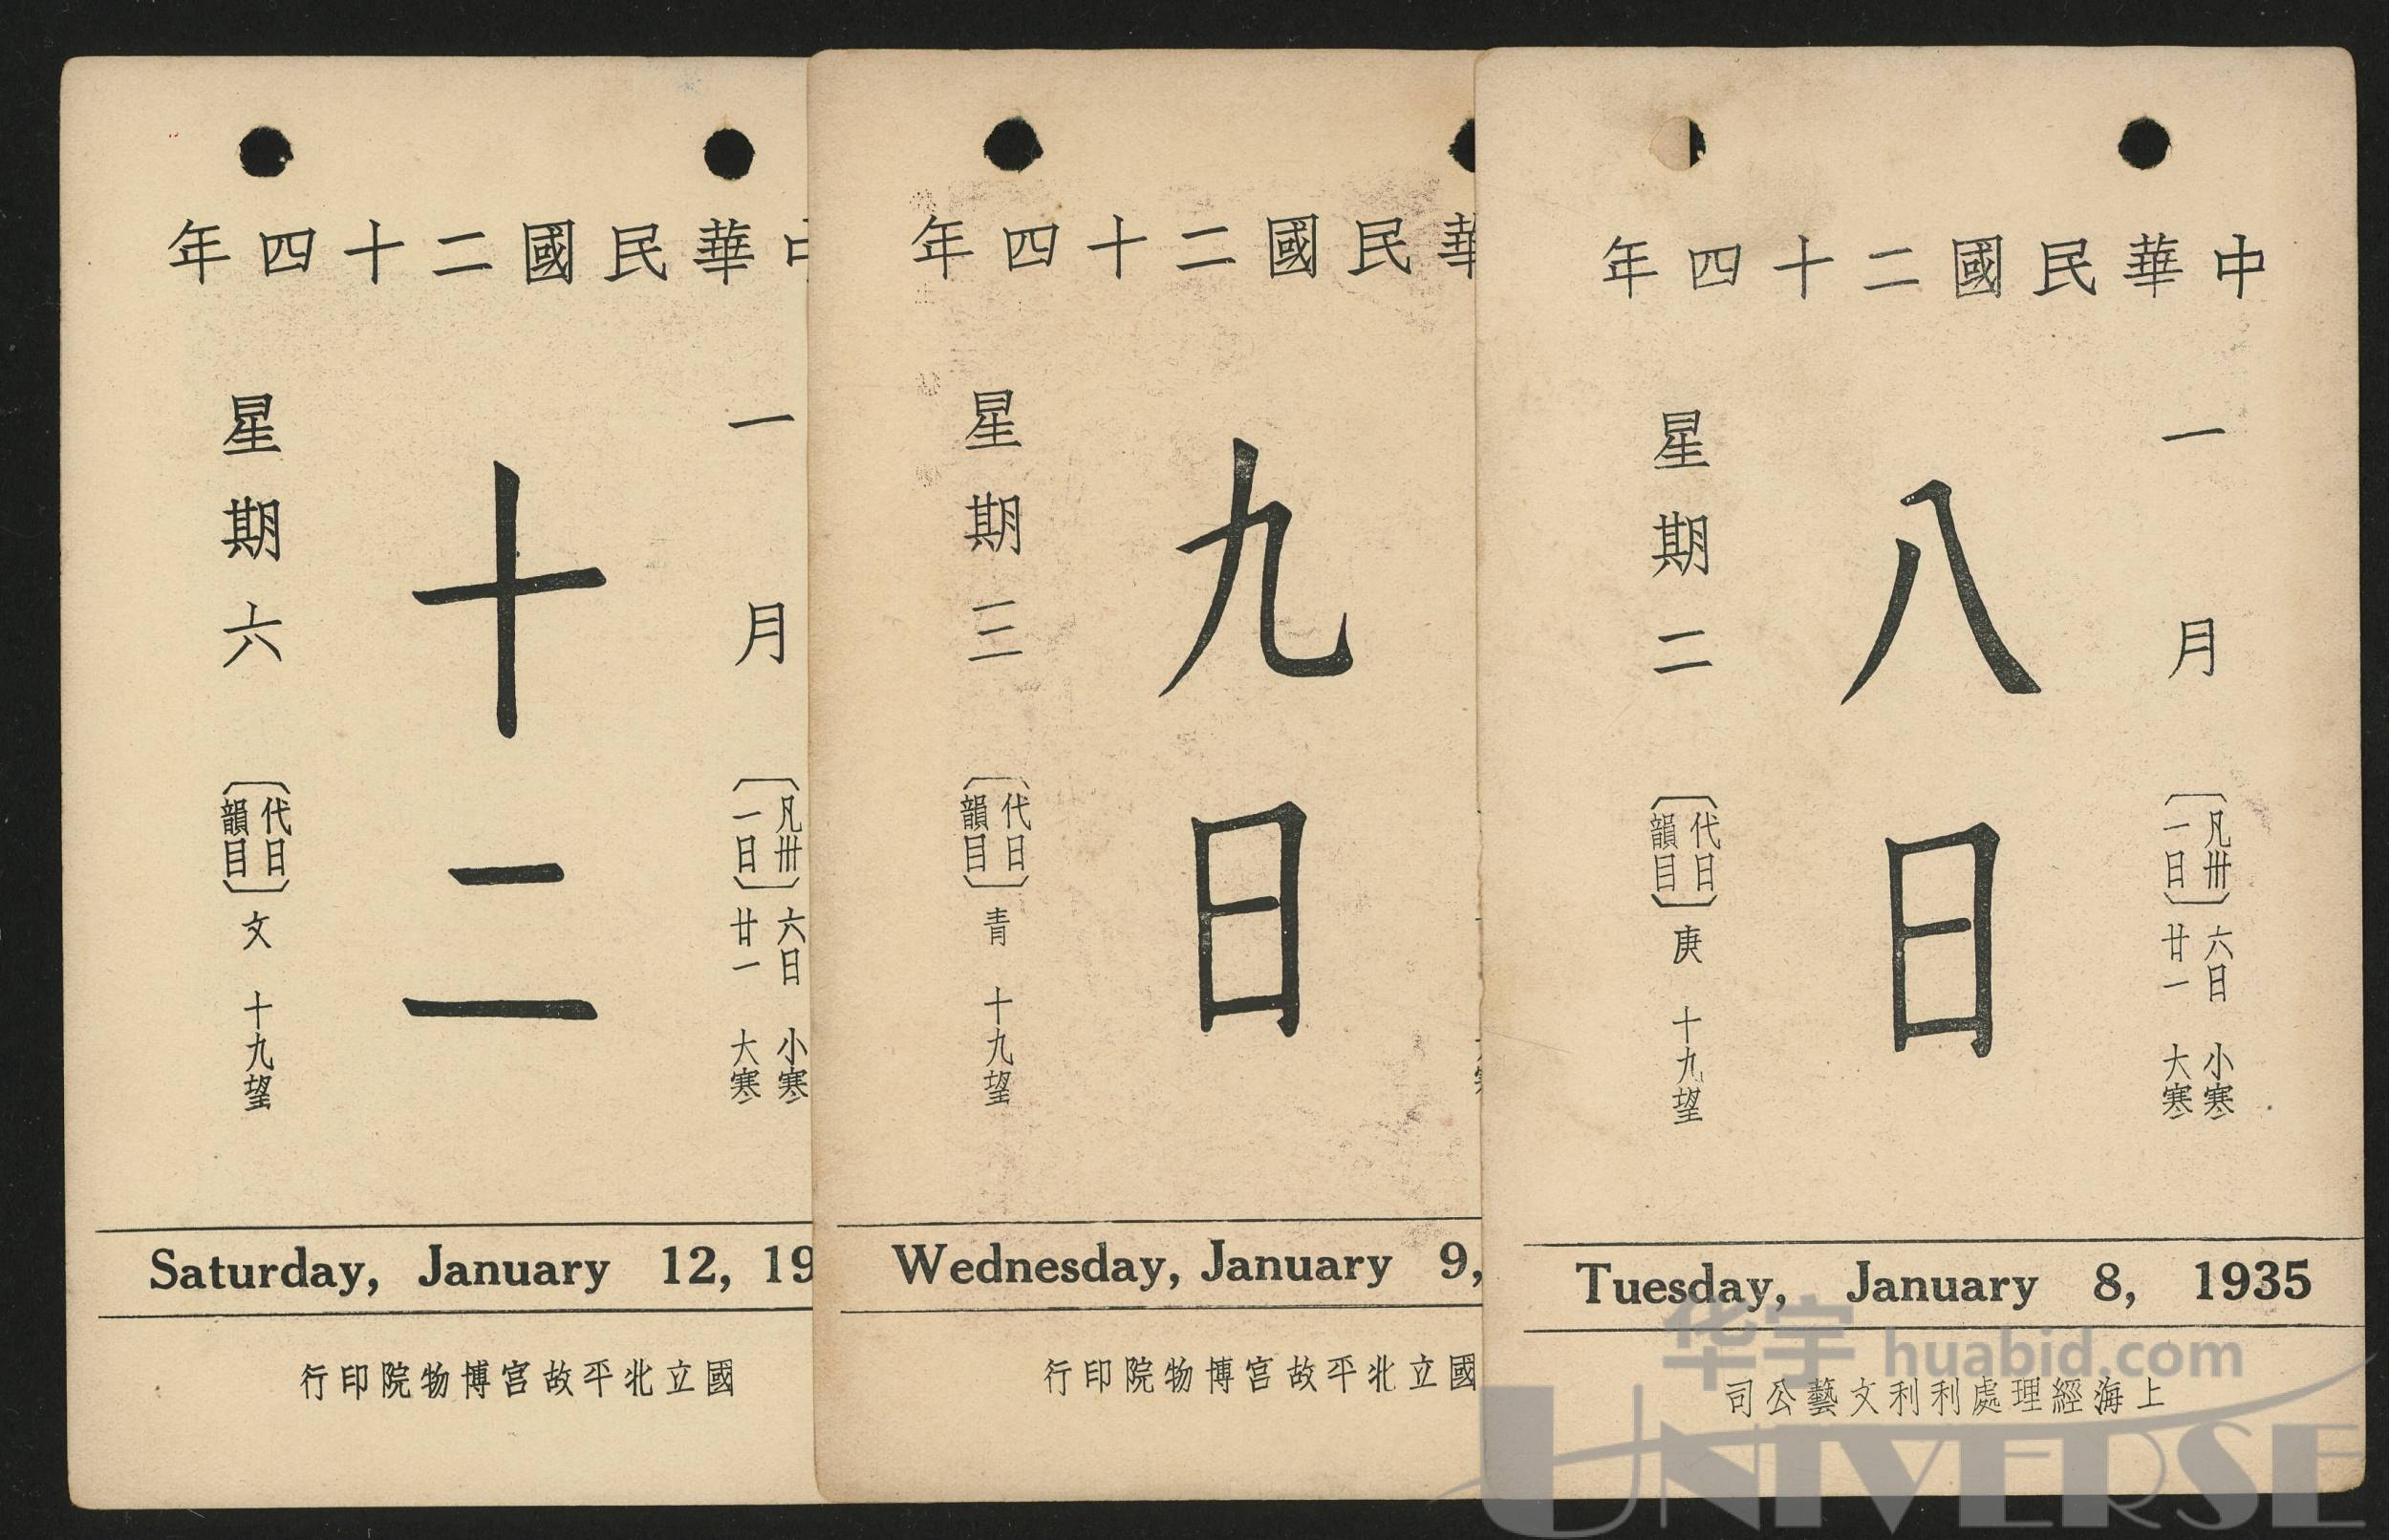 中華民國二十四年
一月
〔凡卅一日〕
六日 小寒
廿一 大寒
十二
星期六
〔代日韻目〕文 十九望
Saturday, January 12, 19
國立北平故宮博物院印行
華民國二十四年
九日
星期三
〔代日韻目〕青 十九望
Wednesday, January 9,
國立北平故宮博物院印行
中華民國二十四年
一月
〔凡卅一日〕
六日 小寒
廿一 大寒
八日
星期二
〔代日韻目〕庚 十九望
Tuesday, January 8, 1935
上海經理處利利文藝公司
华宇 huabid.com
UNIVERSE